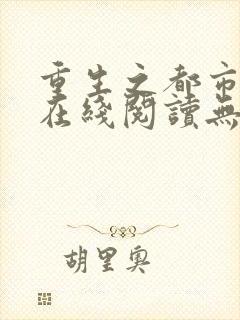 重生之都市
在綫閱讀無
胡里奧